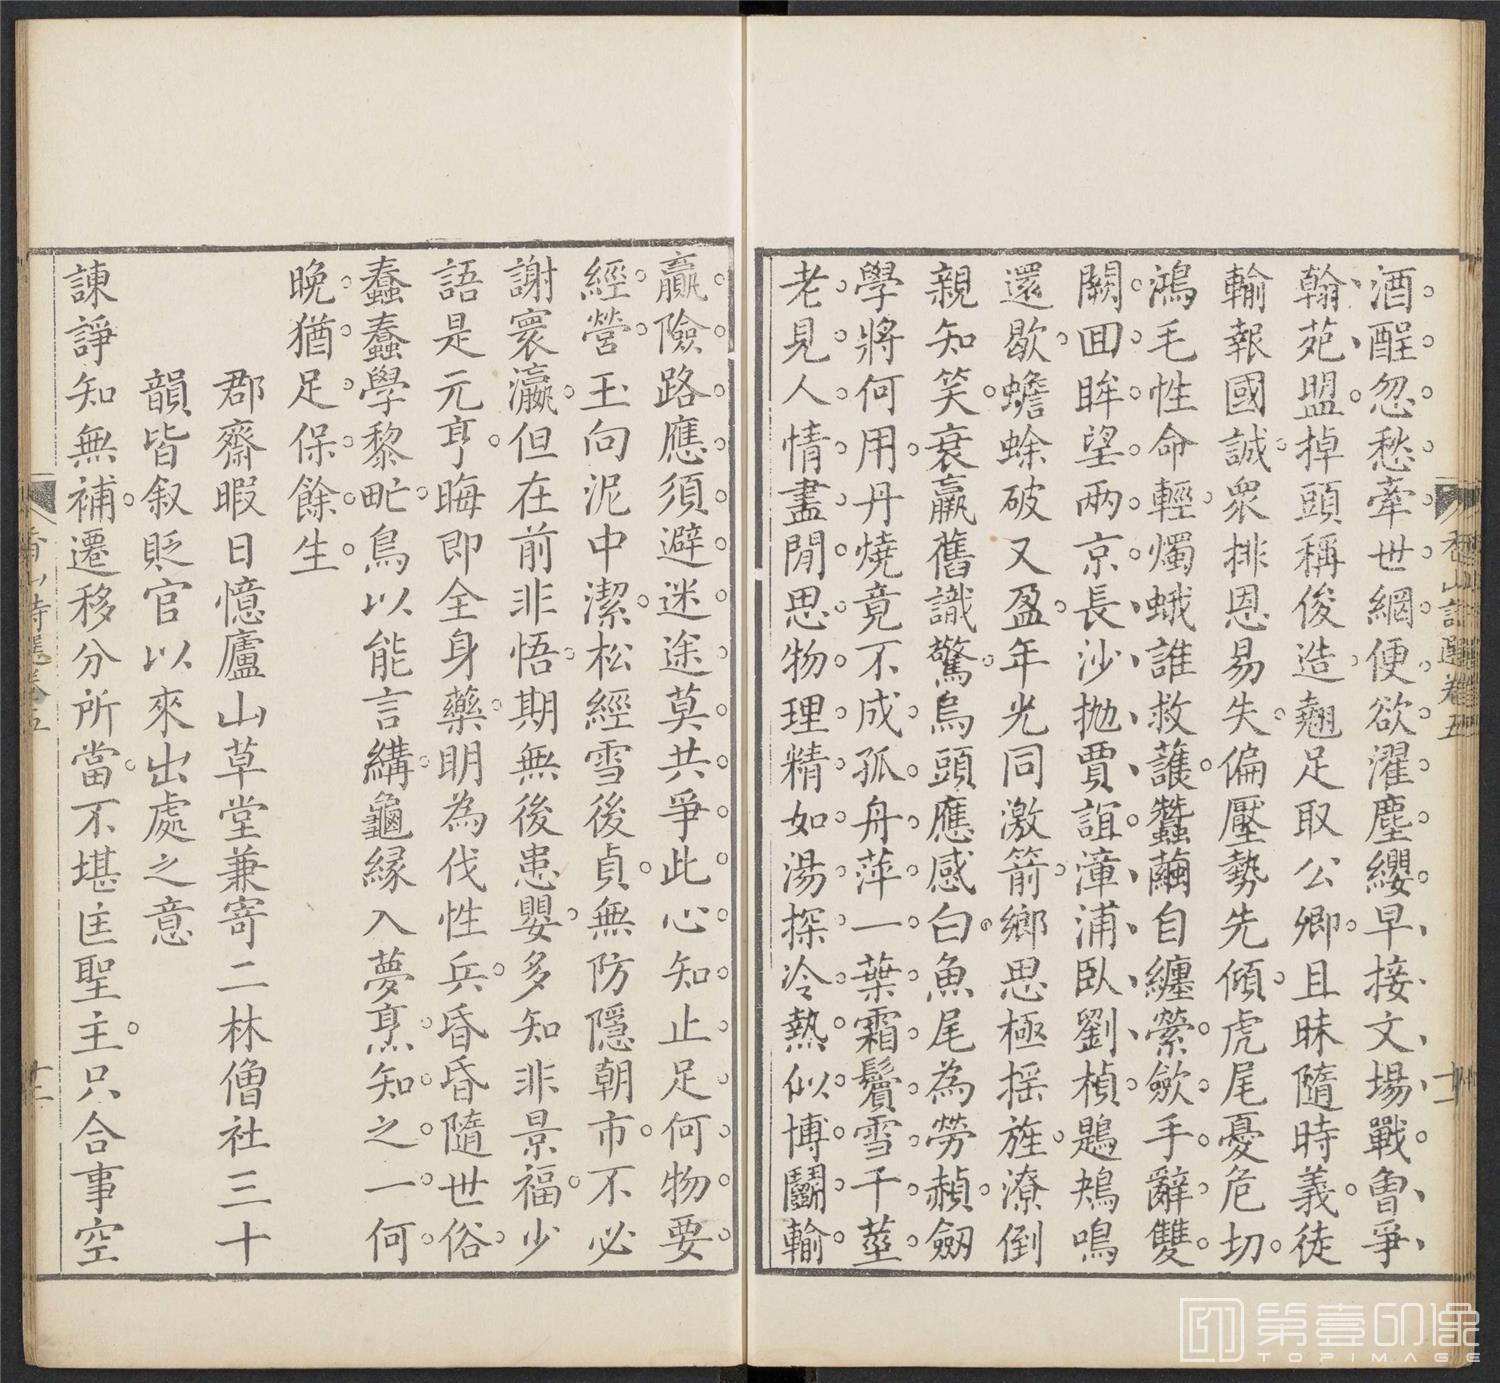 酒酲忽愁牽世網便欲濯塵纓早接文場戰曾爭
翰苑盟掉頭稱俊造翹足取公卿且昧隨時義徒
輸報國誠衆排恩易失偏壓勢先傾虎尾憂危切
鴻毛性命輕燭蛾誰救護蠶繭自纏縈斂手辭雙
闕回眸望兩京長沙拋賈誼漳浦臥劉楨鶗鴂鳴
還歇蟾蜍破又盈年光同激箭鄉思極搖旌潦倒
親知笑衰羸舊識驚烏頭應感白魚尾為勞赬劔
學將何用丹燒竟不成孤舟萍一葉霜鬢雪千莖
老見人情盡閒思物理精如湯探冷熱似博鬭輸
香山詩選卷五
十一
贏險路應須避迷途莫共爭此心知止足何物要
經營玉向泥中潔松經雪後貞無防隱朝市不必
謝寰瀛但在前非悟期無後患嬰多知非景福少
語是元亨晦即全身藥明為伐性兵昏昏隨世俗
蠢蠢學黎甿鳥以能言緤龜緣入夢烹知之一何
晚猶足保餘生
郡齋暇日憶廬山草堂兼寄二林僧社三十
韻皆叙貶官以來出處之意
諫諍知無補遷移分所當不堪匡聖主只合事空
香山詩選卷五
十二
第壹印像
TOPIMAGE